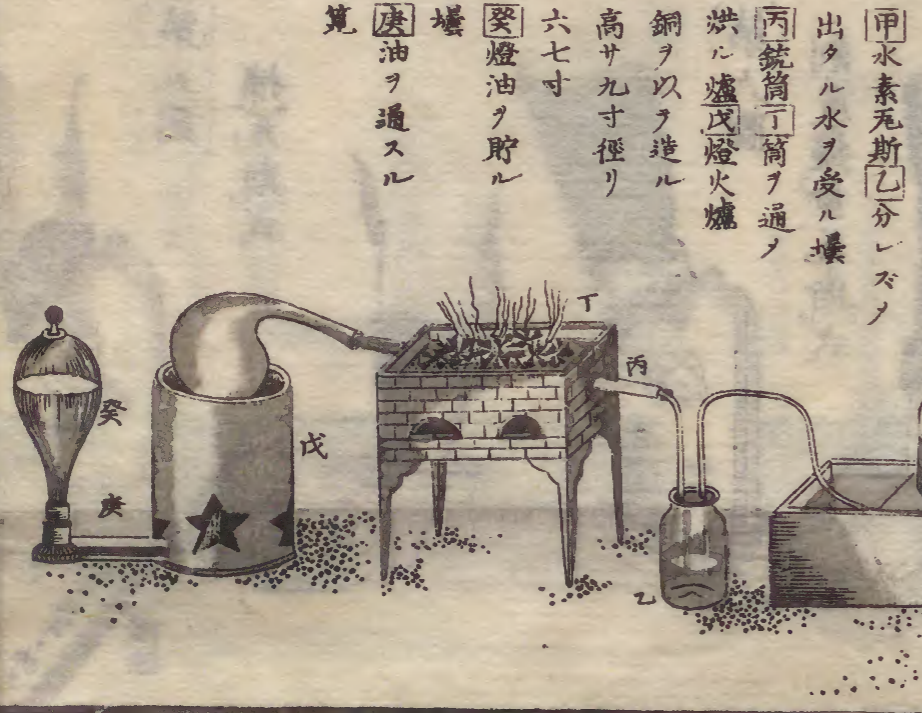 甲水素瓦斯乙分レズノ
出タル水ヲ受ル壜
丙銃筒丁筒ヲ通ノ
烘ル爐戊燈火爐
銅ヲ以ヲ造ル
高サ九寸徑リ
六七寸
癸燈油ヲ貯ル
壜
庚油ヲ通スル
筧
丁
丙
癸
戊
庚
乙